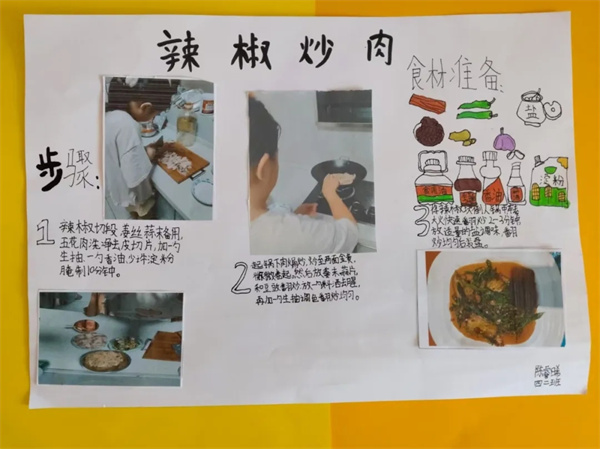 辣椒炒肉
食材准备:
盐
步骤:
1 辣椒切段 姜丝蒜末备用,
五花肉洗净去皮切片,加一勺
生抽一勺香油,少许淀粉
腌制10分钟。
2 起锅下肉煸炒,炒至两面金黄,
微微卷起,然后放姜末、蒜片,
和豆豉翻炒,放一勺料酒去腥,
再加一勺生抽调色翻炒均匀。
3 将辣椒放入锅中
大火快速翻炒2-3分钟,
放适量的盐调味,翻
炒均匀后装盘。
四二班